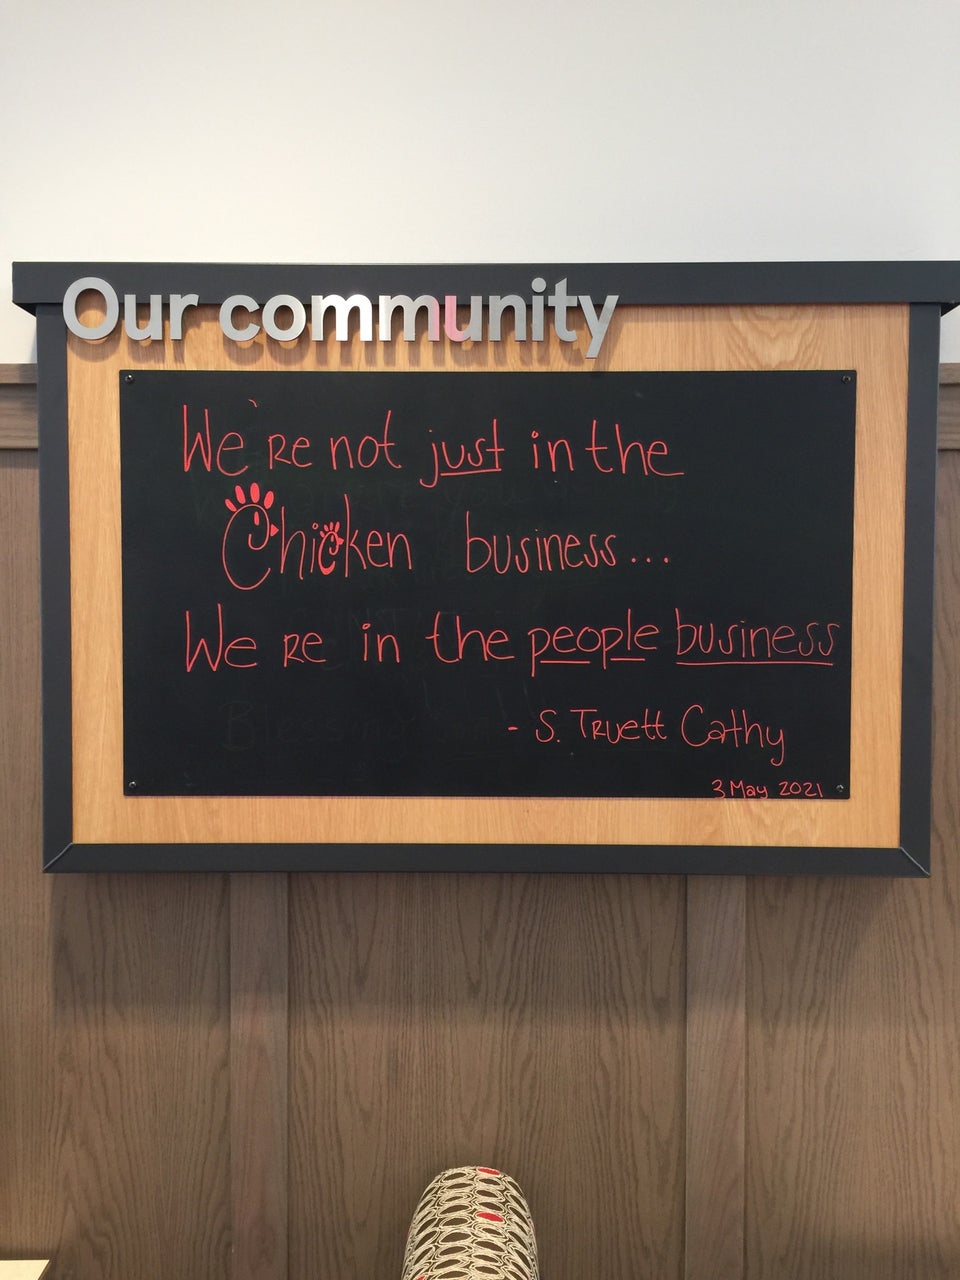 Our community
We're not just in the
Chicken business...
We re in the people business
- S. Truett Cathy
3 May 2021